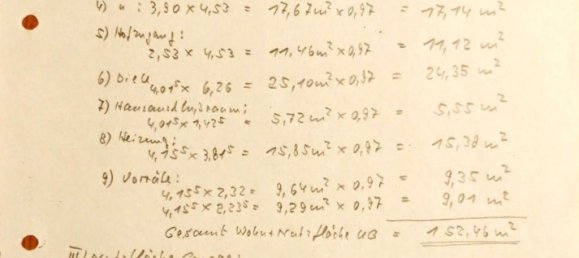 4) " : 3,90 x 4,53 = 17,67 m² x 0,97 = 17,14 m²
5) Hofzugang:
2,53 x 4,53 = 11,46 m² x 0,97 = 11,12 m²
6) Diele
4,01⁵ x 6,26 = 25,10 m² x 0,97 = 24,35 m²
7) Hausanschlußraum:
4,01⁵ x 1,42⁵ = 5,72 m² x 0,97 = 5,55 m²
8) Heizung:
4,15⁵ x 3,81⁵ = 15,85 m² x 0,97 = 15,38 m²
9) Vorräte:
4,15⁵ x 2,32 = 9,64 m² x 0,97 = 9,35 m²
4,15⁵ x 2,23⁵ = 9,29 m² x 0,97 = 9,01 m²
Gesamt Wohn + Nutzfläche = 152,46 m²
III)